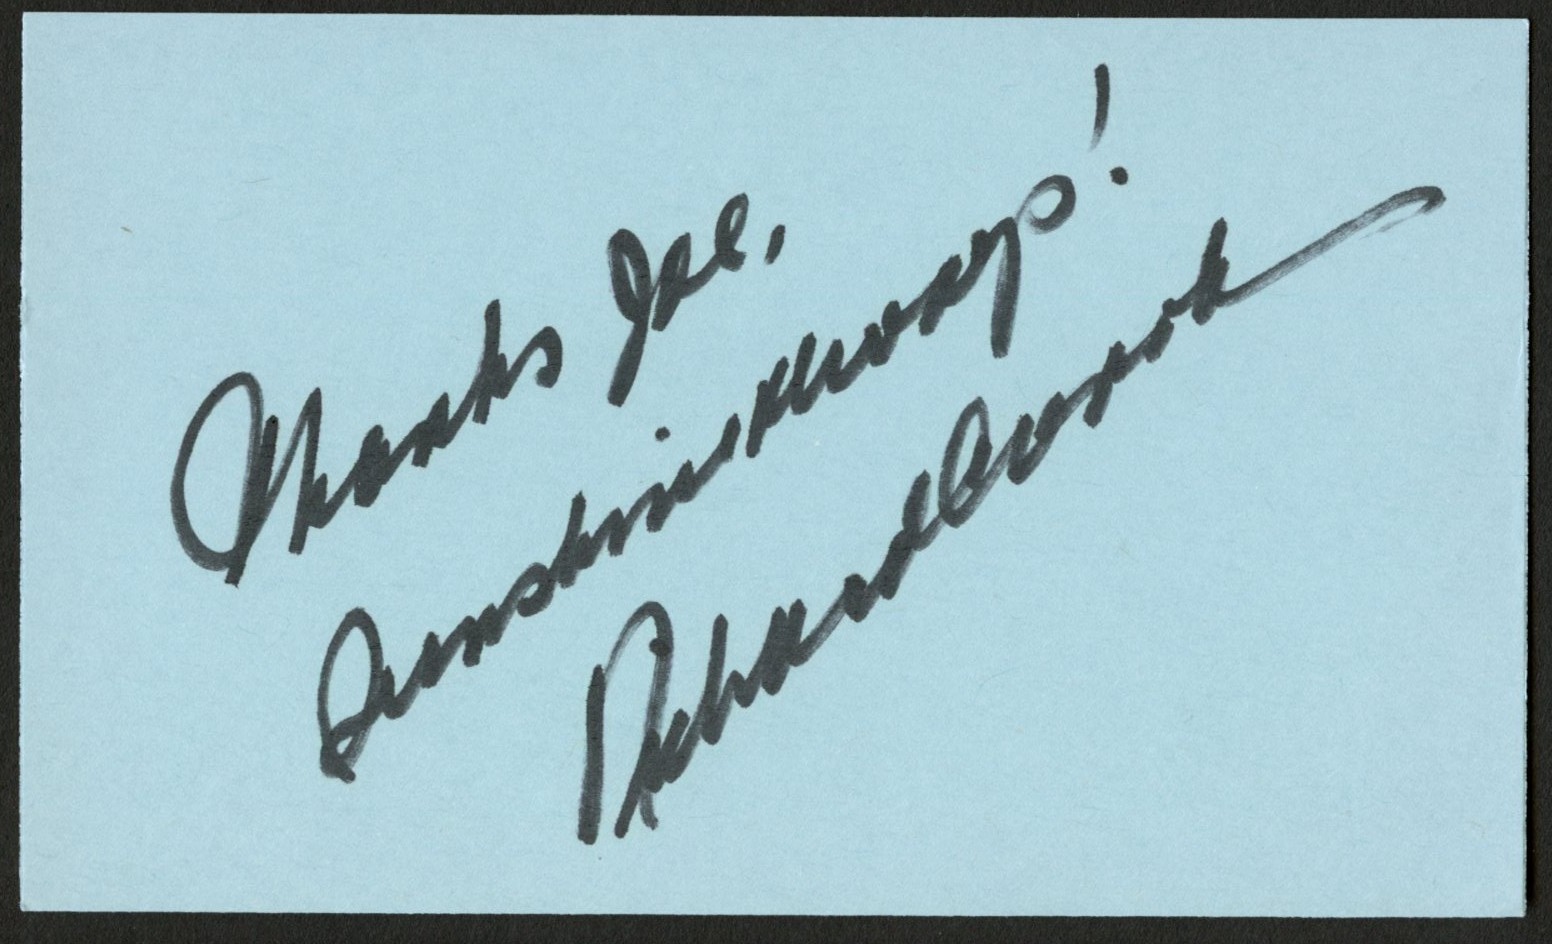 Thanks Joe,
Sunshine always!
Richard